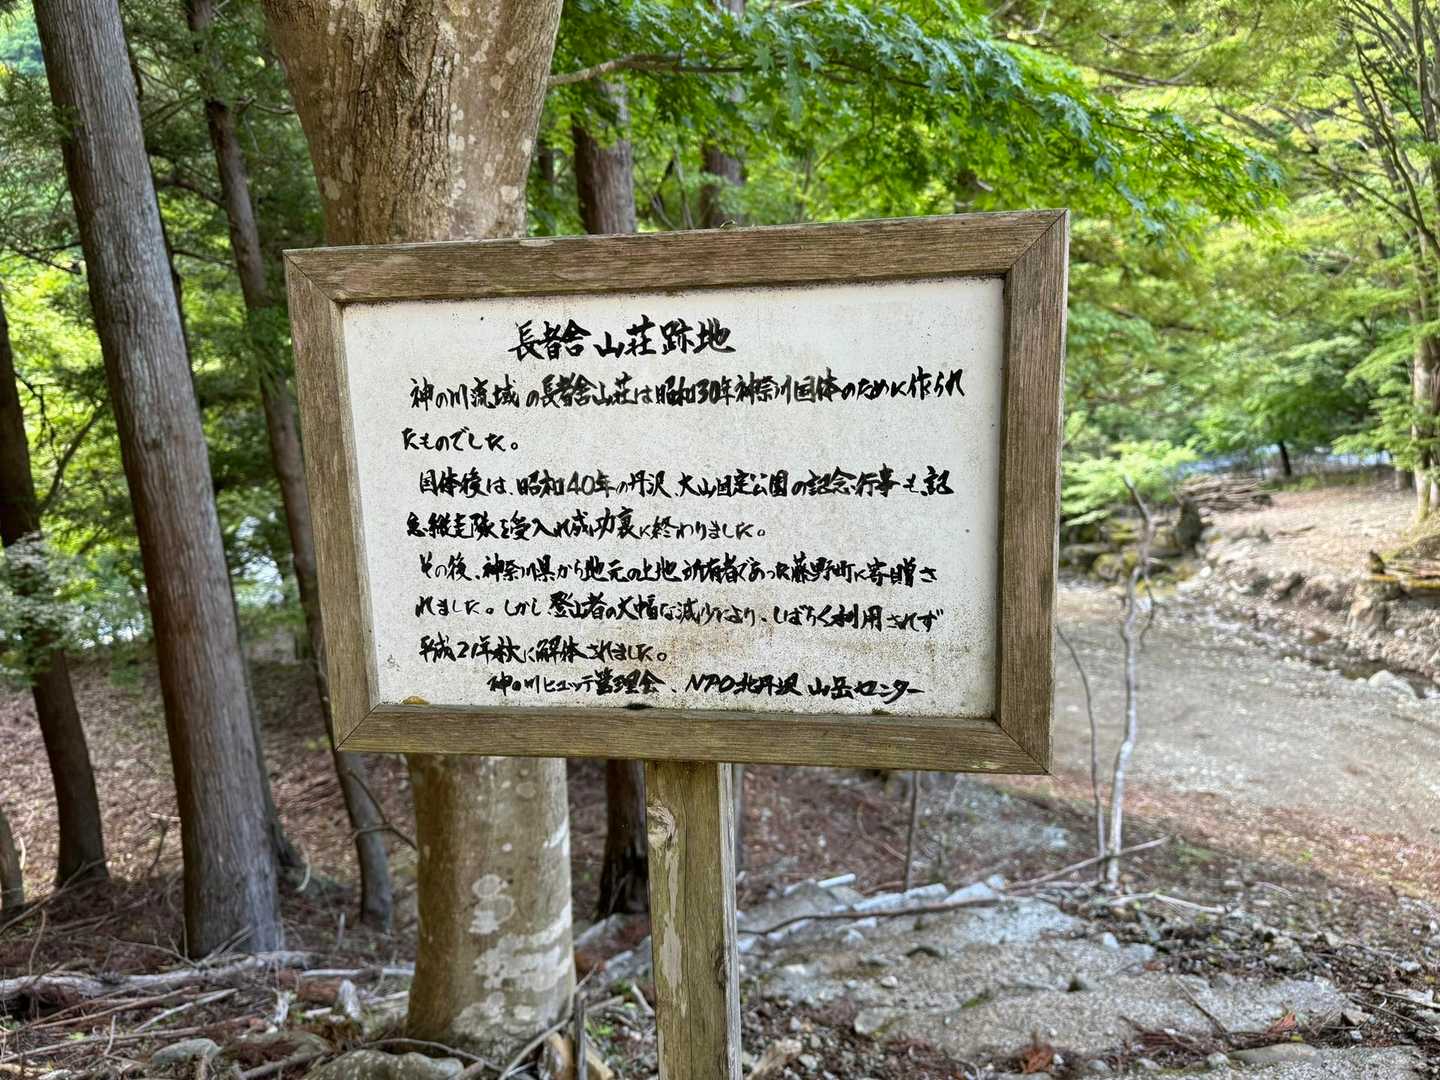 長者舎山荘跡地
神の川流域の長者舎山荘は昭和30年神奈川国体のために作られ
たものでした。
国体後は、昭和40年の丹沢、大山国定公園の記念行事も、記
念縦走隊を受入れ成功裏に終わりました。
その後、神奈川県から地元の土地所有者であった藤野町に寄贈さ
れました。しかし登山者の大幅な減少により、しばらく利用されず
平成21年秋に解体されました。
神の川ヒュッテ管理会、NPO北丹沢山岳センター